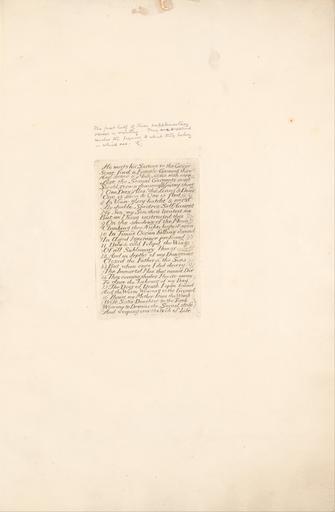 The first half of these supplementary
verses is wanting. They are
under the to which they belong
in which
He meets his Saviour in the Grave
Some find a Female Garment there
And some a Male, woven with care
Lest the Sexual Garments sweet
Should grow a devouring Winding sheet
7 One Dies! Alas! the Living & Dead
One is slain & One is fled
8 In Vain-glory hatcht & nurst
By double Spectres Self Accurst
My Son! my Son! thou treatest me
But as I have instructed thee
9 On the shadows of the Moon
Climbing thro Nights highest noon
10 In Times Ocean falling drownd
In Aged Ignorance profound
11 Holy & cold I clipd the Wings
Of all Sublunary Things
12 And in depths of my Dungeons
Closed the Father & the Sons
13 But when once I did descry
The Immortal Man that cannot Die
14 Thro evening shades I haste away
To close the Labours of my Day
15 The Door of Death I open found
And the Worm Weaving in the Ground
16 Thou'rt my Mother from the Womb
Wife, Sister, Daughter to the Tomb
Weaving to Dreams the Sexual strife
And weeping over the Web of Life